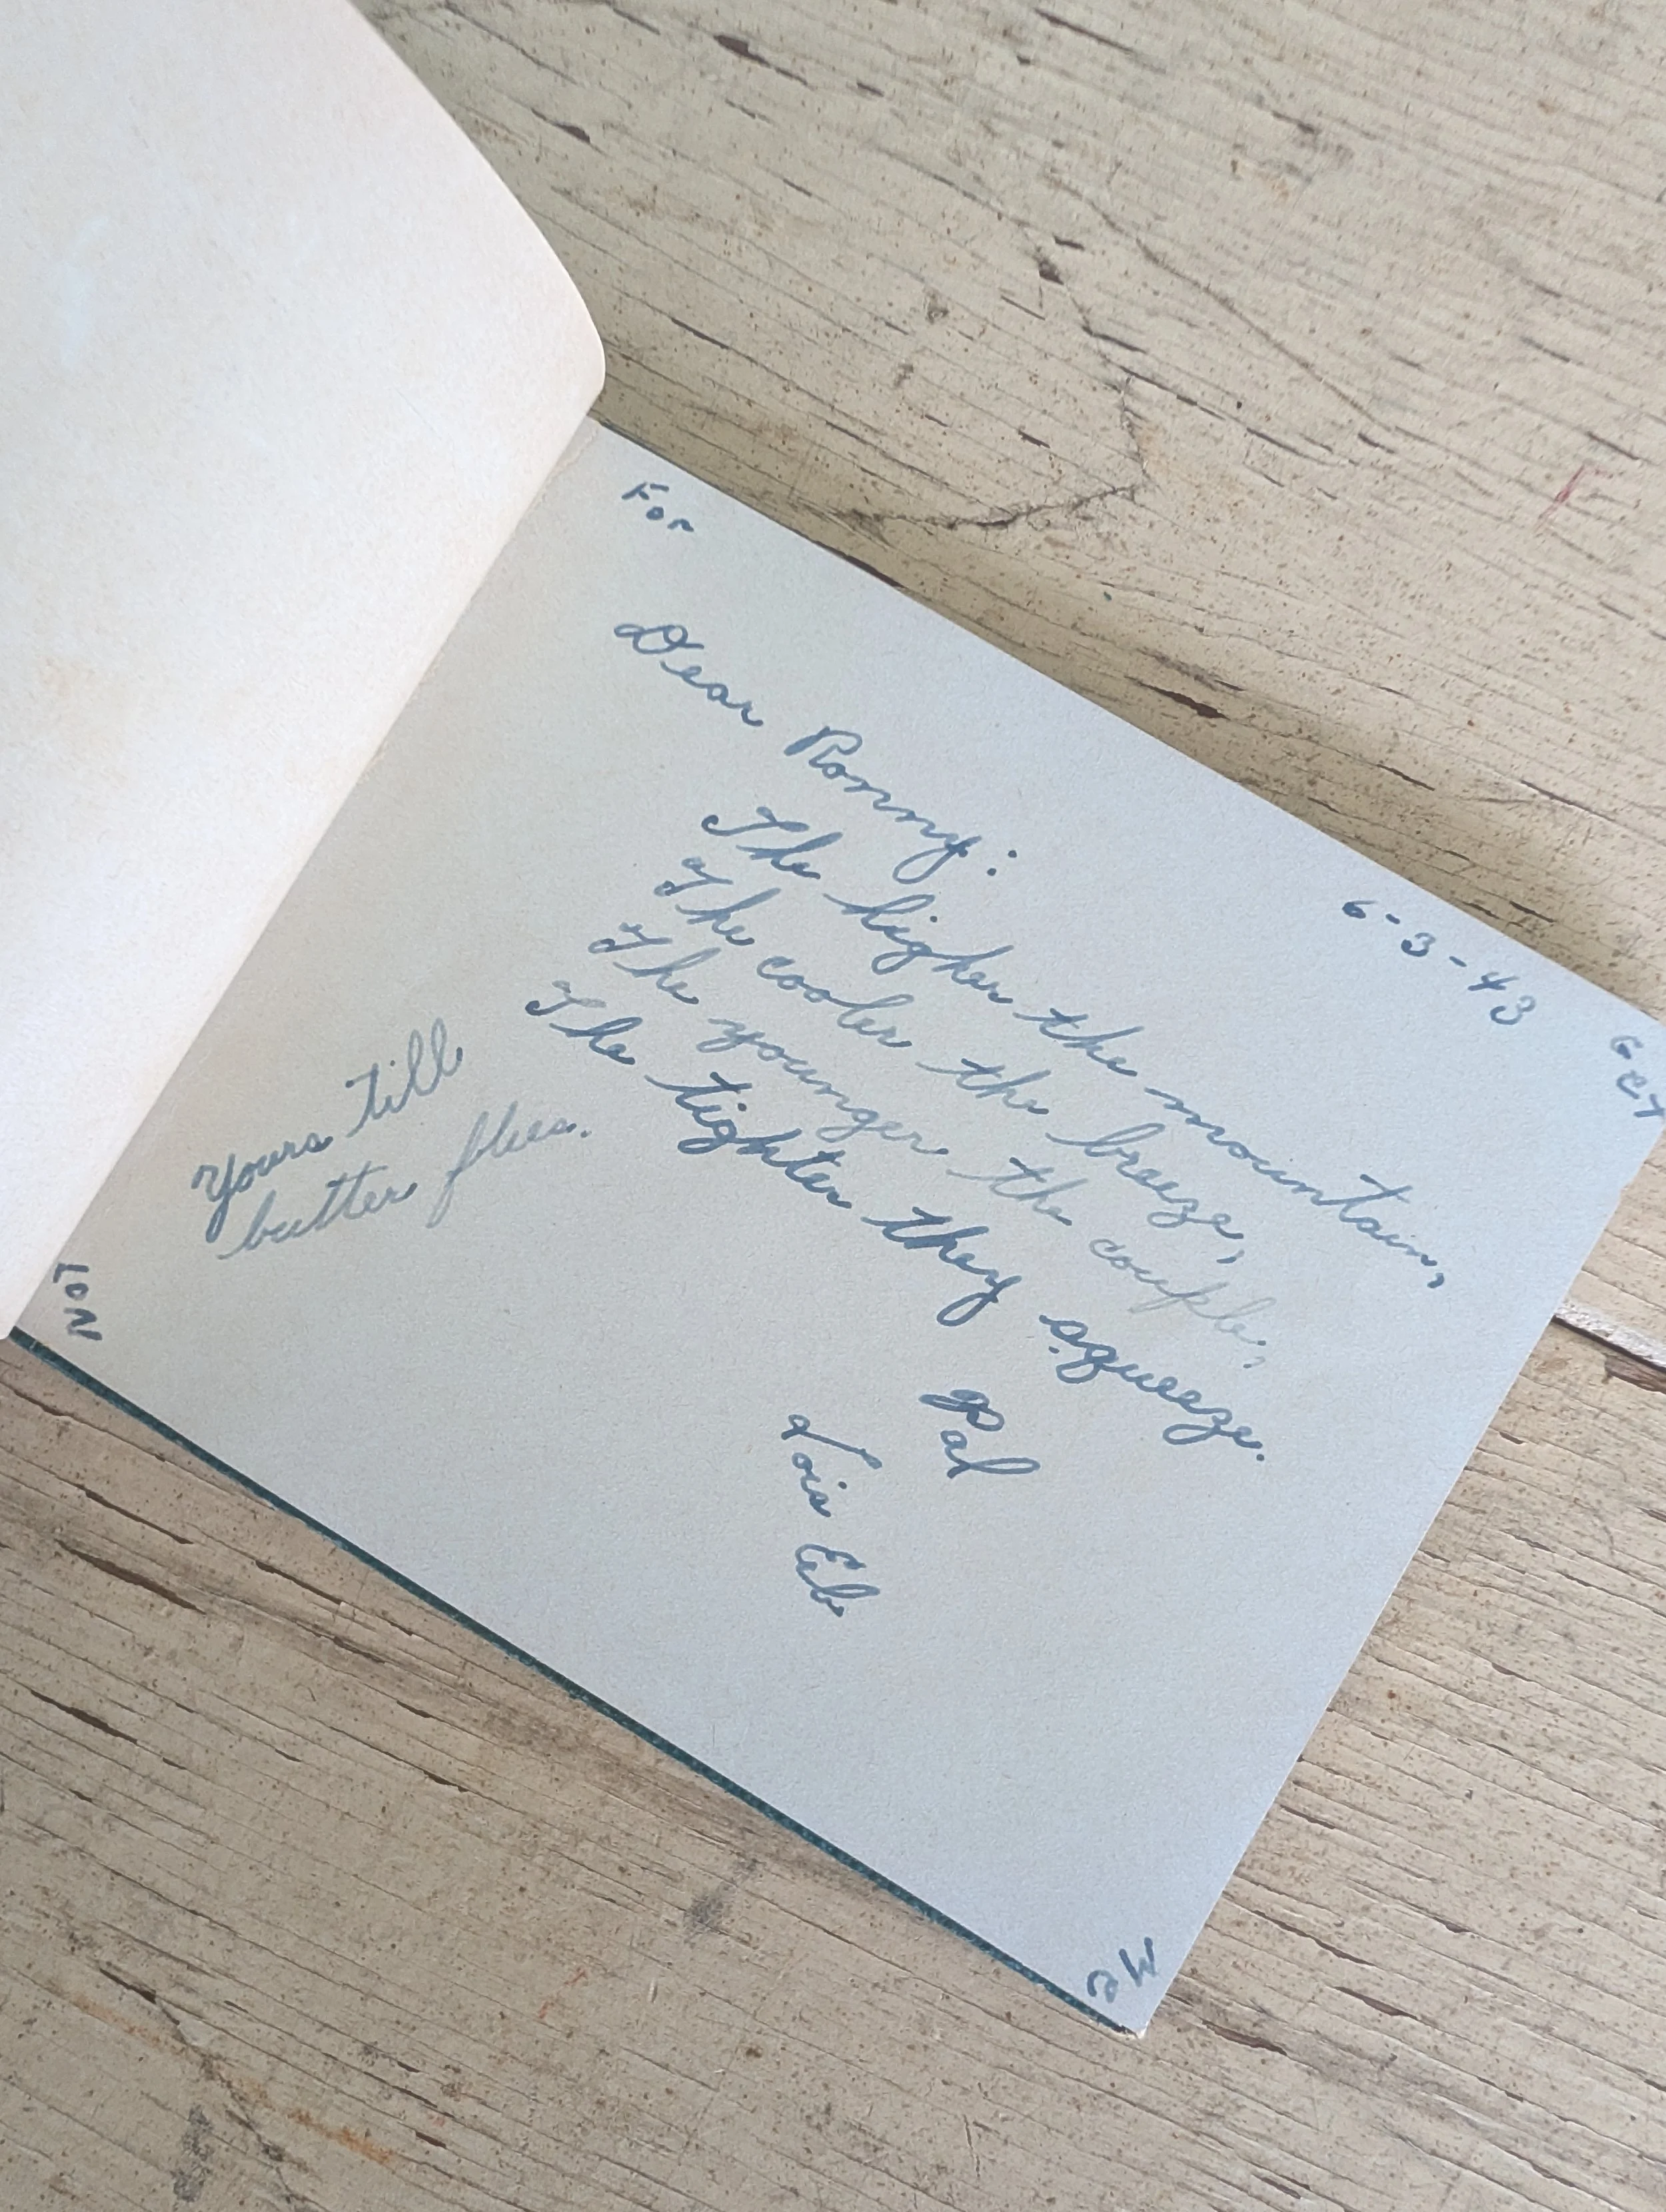 For
6-3-43
Get
Dear Ronny:
The higher the mountain,
The cooler the breeze,
The younger the couple,
The tighter they squeeze.
Pal
Lois Eb
Yours till
butter flies.
Not
Me